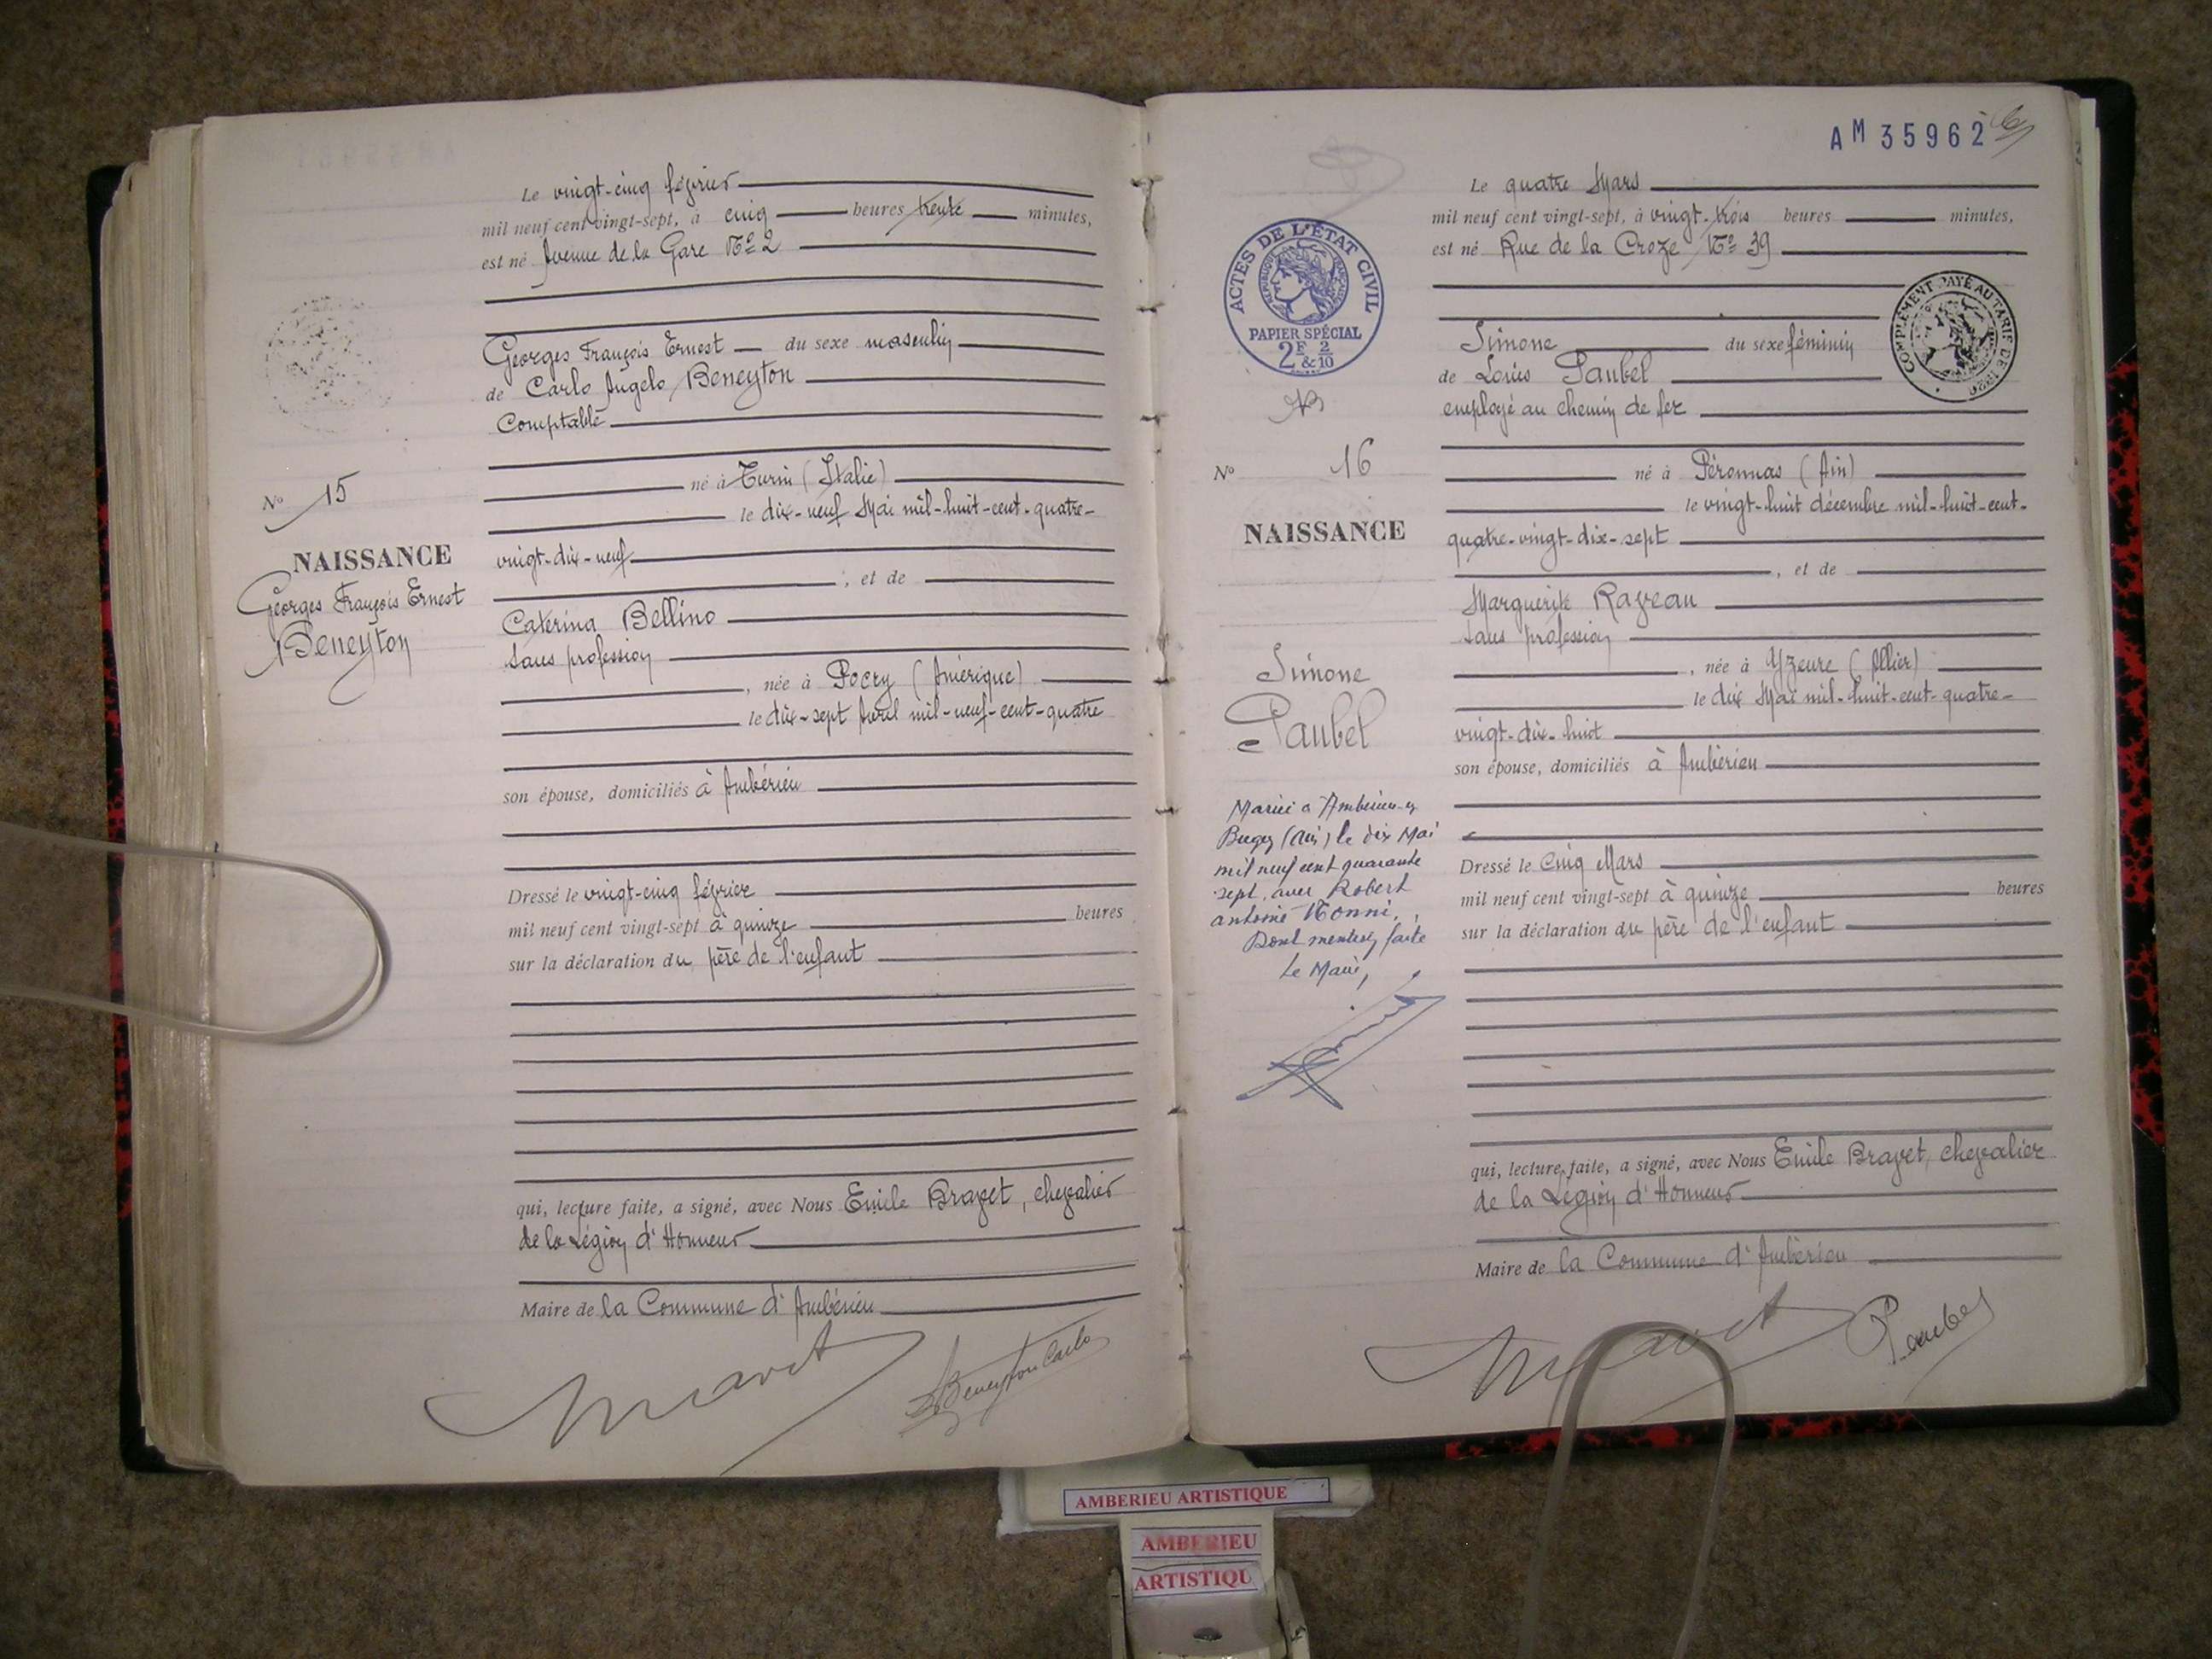 Le vingt-cinq février
mil neuf cent vingt-sept, à cinq heures trente minutes,
est né Avenue de la Gare N° 2
Georges François Ernest du sexe masculin
de Carlo Angelo Beneyton
Comptable
né à Turin (Italie)
N° 15
le dix-neuf Mai mil-huit-cent-quatre-
NAISSANCE
vingt-dix-neuf
, et de
Georges François Ernest
Beneyton
Caterina Bellino
sans profession
, née à Pocry (Amérique)
le dix-sept Avril mil-neuf-cent-quatre
son épouse, domiciliés à Ambérieu
Dressé le vingt-cinq février
mil neuf cent vingt-sept à quinze heures
sur la déclaration du père de l'enfant
qui, lecture faite, a signé, avec Nous Emile Bravet, chevalier
de la Légion d'Honneur
Maire de la Commune d'Ambérieu
Bravet
Beneyton Carlo
AM 35962
Le quatre Mars
mil neuf cent vingt-sept, à vingt-trois heures minutes,
est né Rue de la Croze N° 39
ACTES DE L'ÉTAT CIVIL
RÉPUBLIQUE FRANÇAISE
PAPIER SPÉCIAL
2F & 2/10
COMPLÉMENT PAYÉ AU TARIF DE 1926
Simone du sexe féminin
de Louis Paubel
employé au chemin de fer
N° 16
né à Péronnas (Ain)
le vingt-huit décembre mil-huit-cent-
NAISSANCE
quatre-vingt-dix-sept
, et de
Marguerite Raveau
sans profession
Simone
Paubel
, née à Yzeure (Allier)
le dix Mai mil-huit-cent-quatre-
vingt-dix-huit
son épouse, domiciliés à Ambérieu
Mariée à Ambérieu-en
Bugey (Ain) le dix Mai
mil neuf cent quarante
sept, avec Robert
antoine Nonni.
Dont mention faite
Le Maire,
Dressé le Cinq Mars
mil neuf cent vingt-sept à quinze heures
sur la déclaration du père de l'enfant
qui, lecture faite, a signé, avec Nous Emile Bravet, chevalier
de la Légion d'Honneur
Maire de la Commune d'Ambérieu
Bravet
Paubel
AMBERIEU ARTISTIQUE
AMBERIEU
ARTISTIQU